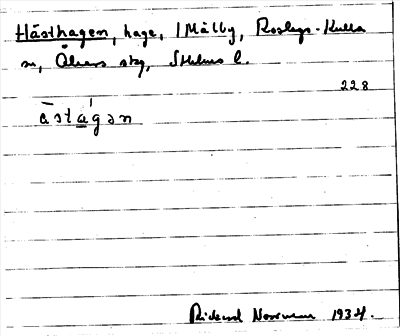 Hästhagen, hage, 1 Målby, Roslags-Kulla
sn, Åkers skg, Sthlms l.
228
ɛ̄stagən
Rickard Norrman 1934.